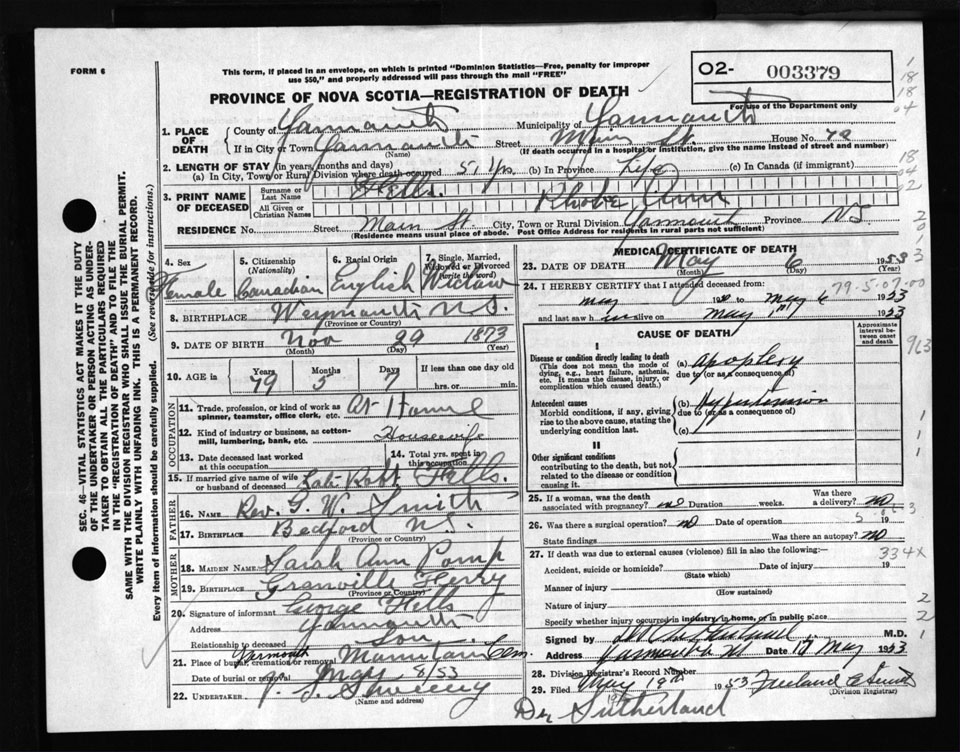 FORM 6
This form, if placed in an envelope, on which is printed "Dominion Statistics—Free, penalty for improper
use $50," and properly addressed will pass through the mail "FREE"
O2- 003379
For use of the Department only
PROVINCE OF NOVA SCOTIA—REGISTRATION OF DEATH
1. PLACE OF DEATH
County of Yarmouth Municipality of Yarmouth
If in City or Town Yarmouth Street Main St. House No. 78
(Name) (If death occurred in a hospital or institution, give the name instead of street and number)
2. LENGTH OF STAY (in years, months and days)
(a) In City, Town or Rural Division where death occurred 51 yrs. (b) In Province Life (c) In Canada (if immigrant)
3. PRINT NAME OF DECEASED
Surname or Last Name Fells.
All Given or Christian Names Rhoba Ann
RESIDENCE No. Street Main St. City, Town or Rural Division Yarmouth Province NS
(Residence means usual place of abode. Post Office Address for residents in rural parts not sufficient)
4. Sex Female
5. Citizenship (Nationality) Canadian
6. Racial Origin English
7. Single, Married, Widowed or Divorced (write the word) Widow
8. BIRTHPLACE Weymouth N.S.
(Province or Country)
9. DATE OF BIRTH Nov 29 1873
(Month) (Day) (Year)
10. AGE in Years 79 Months 5 Days 7 If less than one day old
hrs. or min.
OCCUPATION
11. Trade, profession, or kind of work as spinner, teamster, office clerk, etc. At Home
12. Kind of industry or business, as cotton-mill, lumbering, bank, etc. Housewife
13. Date deceased last worked at this occupation
14. Total yrs. spent in this occupation
15. If married give name of wife or husband of deceased Late Robt Fells.
FATHER
16. Name Rev. G. W. Smith
17. BIRTHPLACE Bedford N.S.
(Province or Country)
MOTHER
18. MAIDEN NAME Sarah Ann Pomp
19. BIRTHPLACE Granville Ferry
(Province or Country)
20. Signature of informant George Fells
Address Yarmouth
Relationship to deceased Son.
21. Place of burial, cremation or removal Yarmouth Mountain Cem.
Date of burial or removal May 8/53
22. UNDERTAKER Sweeny
(Name and address)
MEDICAL CERTIFICATE OF DEATH
23. DATE OF DEATH May 6 1953
(Month) (Day) (Year)
24. I HEREBY CERTIFY that I attended deceased from:
79-5-07-00
May 19 to May 6 1953
and last saw h alive on May 1953
CAUSE OF DEATH
Approximate interval between onset and death
I
Disease or condition directly leading to death
(This does not mean the mode of dying, e.g., heart failure, asthenia, etc. It means the disease, injury, or complication which caused death.)
(a) apoplexy
due to (or as a consequence of)
Antecedent causes
Morbid conditions, if any, giving rise to the above cause, stating the underlying condition last.
(b) Hypertension
due to (or as a consequence of)
(c)
II
Other significant conditions
contributing to the death, but not related to the disease or condition causing it.
25. If a woman, was the death associated with pregnancy? no Duration weeks. Was there a delivery? no
26. Was there a surgical operation? no Date of operation 19
State findings Was there an autopsy? NO
27. If death was due to external causes (violence) fill in also the following:—
334X
Accident, suicide or homicide? Date of injury 19
(State which)
Manner of injury
(How sustained)
Nature of injury
Specify whether injury occurred in industry, in home, or in public place
Signed by M.D.
Address Yarmouth NS Date 17 May 1953
28. Division Registrar's Record Number
29. Filed May 19th 1953
(Division Registrar)
Dr Sutherland
SEC. 46—VITAL STATISTICS ACT MAKES IT THE DUTY
OF THE UNDERTAKER OR PERSON ACTING AS UNDERTAKER TO OBTAIN ALL THE PARTICULARS REQUIRED
IN THE "REGISTRATION OF DEATH" AND TO FILE THE
SAME WITH THE DIVISION REGISTRAR WHO SHALL ISSUE THE BURIAL PERMIT.
WRITE PLAINLY WITH UNFADING INK. THIS IS A PERMANENT RECORD.
Every item of information should be carefully supplied. (See reverse side for instructions.)